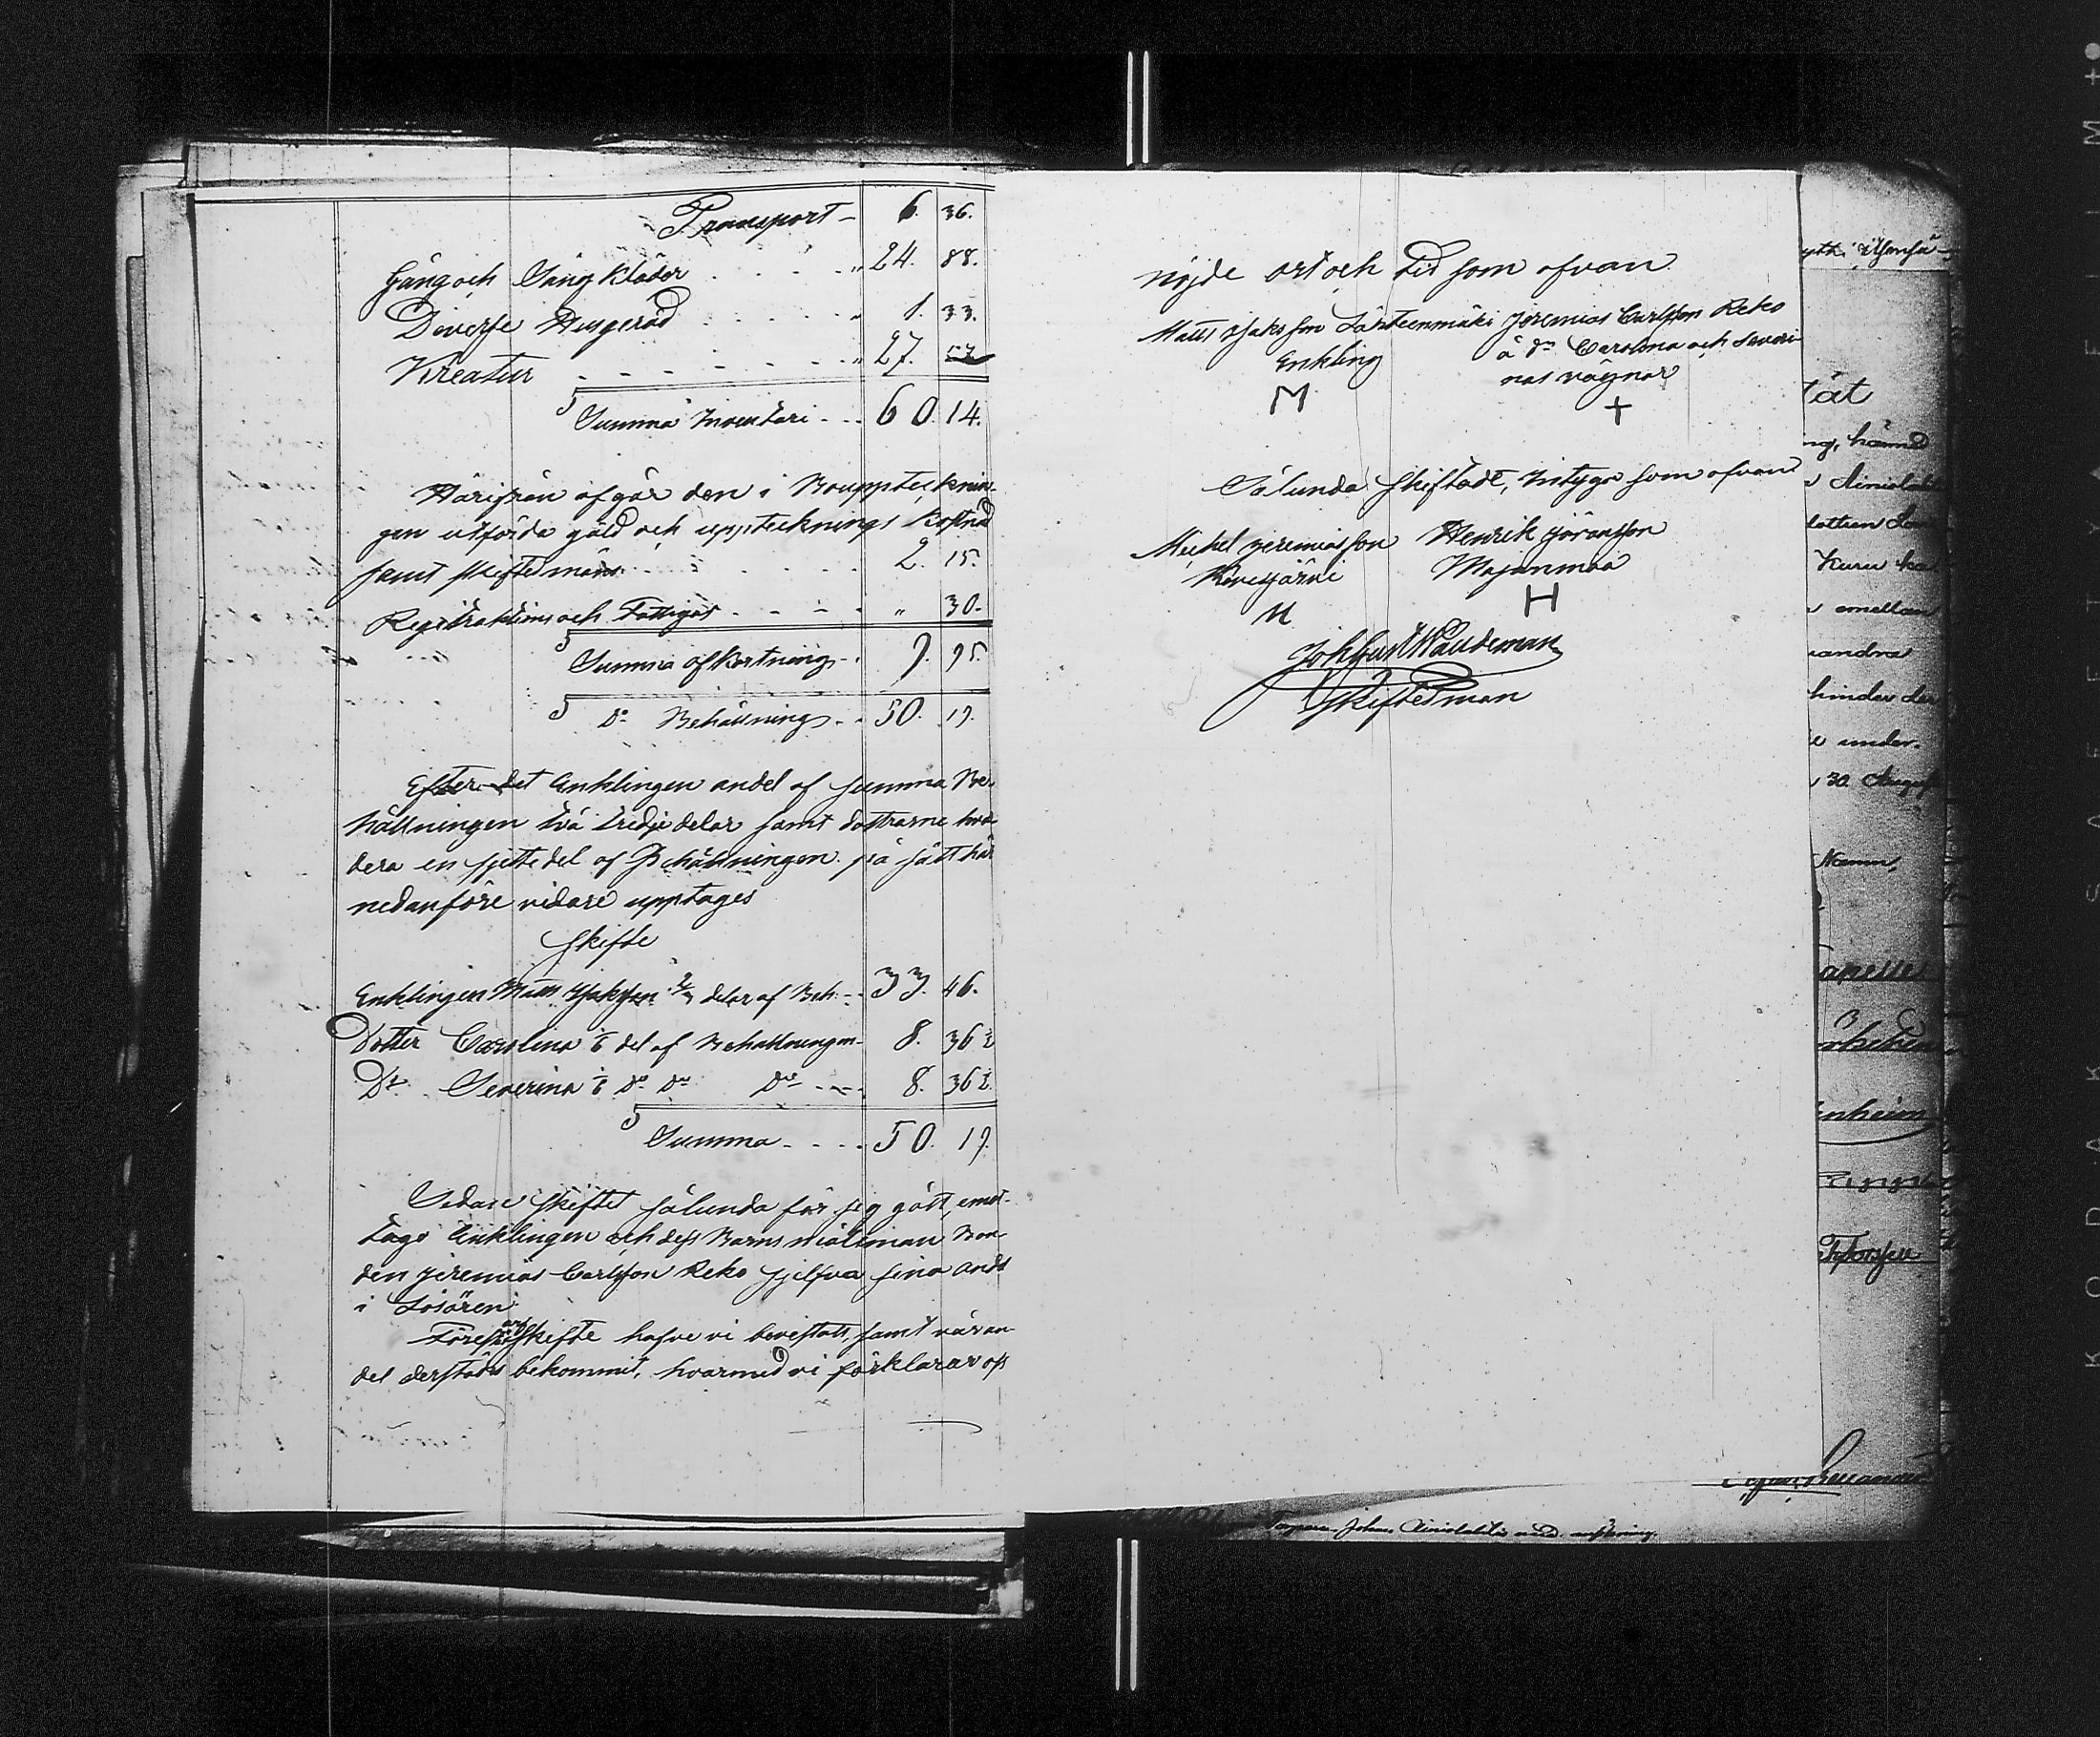 Transport - 6. 36.
Gång och Säng Kläder . . . . " 24. 88.
Diverse Husgeråd . . . . . " 1. 33.
Kreatur - - - - - - - " 27. 57
Summa Inventari - - - 60. 14.
Härifrån afgår den i Boupptecknin-
gen utförda gäld och uppteknings Kostnad
samt skiftesmäns . . . . . . 2. 15.
Registraktions och Fattigas - - - - " 30.
Summa afkortning - . 9. 95.
So Behållning - . 50. 19.
Efter det Enklingen andel af summa Be-
hållningen två tredje delar samt dottrarne hva-
dera en sjette del af Behållningen på sätt här
nedanföre vidare upptages
Skifte
Enklingen Matts Isaksson 2/3 delar af Beh: - 33. 46.
Dotter Carolina 1/6 del af Behållningen - 8. 36 1/2
Dr. Severina 1/6 do do do - - - 8. 36 1/2
Summa - - - - 50. 19.
Sedan skiftet sålunda för sig gått, emot-
togo Enklingen och dess Barns målsman Bon-
den Jeremias Carlsson Reko sjelfva sina andel
i Lösören.
Förestå arfskifte hafve vi bevistatt, samt vår an-
del derstädes bekommit, hvarmed vi förklarar oss
nöjde ort och tid som ofvan
Matts Isaksson Lähteenmäki Jeremias Carlsson Reko
Enkling å do Carolina och Severi-
nas vägnar
M +
Sålunda skiftadt, intyga som ofvan
Michel Jeremiasson Henrik Göransson
Kivesjärvi Majanmaa
M H
Joh Gust Waudeman
Skiftesman
tät
ng, hämnd
Kuru
emellan
andra
hinder der
e under.
30. August
Namn,
apelle
nheim